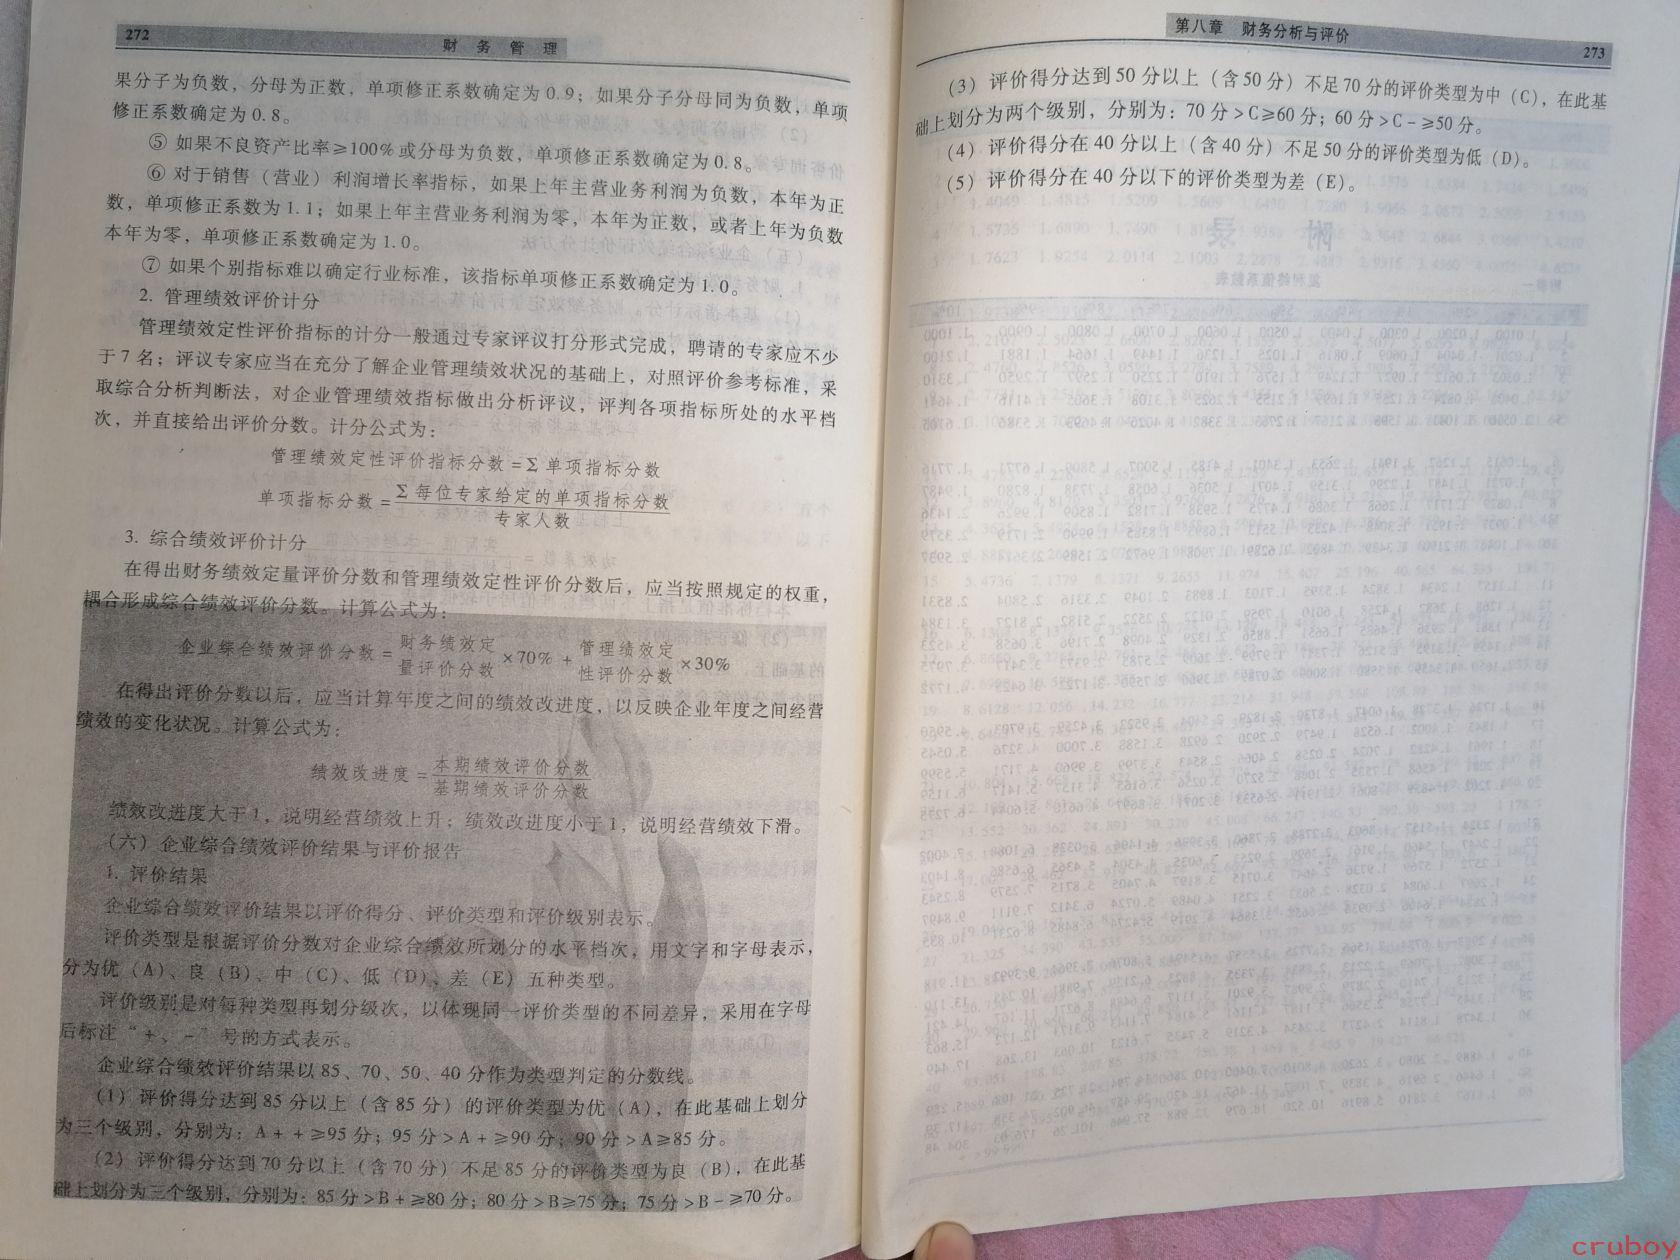 272
财 务 管 理
果分子为负数，分母为正数，单项修正系数确定为0.9；如果分子分母同为负数，单项
修正系数确定为0.8。
⑤ 如果不良资产比率≥100%或分母为负数，单项修正系数确定为0.8。
⑥ 对于销售（营业）利润增长率指标，如果上年主营业务利润为负数，本年为正
数，单项修正系数为1.1；如果上年主营业务利润为零，本年为正数，或者上年为负数
本年为零，单项修正系数确定为1.0。
⑦ 如果个别指标难以确定行业标准，该指标单项修正系数确定为1.0。
2. 管理绩效评价计分
管理绩效定性评价指标的计分一般通过专家评议打分形式完成，聘请的专家应不少
于7名；评议专家应当在充分了解企业管理绩效状况的基础上，对照评价参考标准，采
取综合分析判断法，对企业管理绩效指标做出分析评议，评判各项指标所处的水平档
次，并直接给出评价分数。计分公式为：
管理绩效定性评价指标分数=Σ单项指标分数
单项指标分数=Σ每位专家给定的单项指标分数
专家人数
3. 综合绩效评价计分
在得出财务绩效定量评价分数和管理绩效定性评价分数后，应当按照规定的权重，
耦合形成综合绩效评价分数。计算公式为：
企业综合绩效评价分数=财务绩效定量评价分数×70%+管理绩效定性评价分数×30%
在得出评价分数以后，应当计算年度之间的绩效改进度，以反映企业年度之间经营
绩效的变化状况。计算公式为：
绩效改进度=本期绩效评价分数
基期绩效评价分数
绩效改进度大于1，说明经营绩效上升；绩效改进度小于1，说明经营绩效下滑。
（六）企业综合绩效评价结果与评价报告
1. 评价结果
企业综合绩效评价结果以评价得分、评价类型和评价级别表示。
评价类型是根据评价分数对企业综合绩效所划分的水平档次，用文字和字母表示，
分为优（A）、良（B）、中（C）、低（D）、差（E）五种类型。
评价级别是对每种类型再划分级次，以体现同一评价类型的不同差异，采用在字母
后标注“+、-”号的方式表示。
企业综合绩效评价结果以85、70、50、40分作为类型判定的分数线。
（1）评价得分达到85分以上（含85分）的评价类型为优（A），在此基础上划分
为三个级别，分别为：A++≥95分；95分>A+≥90分；90分>A≥85分。
（2）评价得分达到70分以上（含70分）不足85分的评价类型为良（B），在此基
础上划分为三个级别，分别为：85分>B+≥80分；80分>B≥75分；75分>B-≥70分。
第八章 财务分析与评价
273
（3）评价得分达到50分以上（含50分）不足70分的评价类型为中（C），在此基
础上划分为两个级别，分别为：70分>C≥60分；60分>C-≥50分。
（4）评价得分在40分以上（含40分）不足50分的评价类型为低（D）。
（5）评价得分在40分以下的评价类型为差（E）。
cruboy